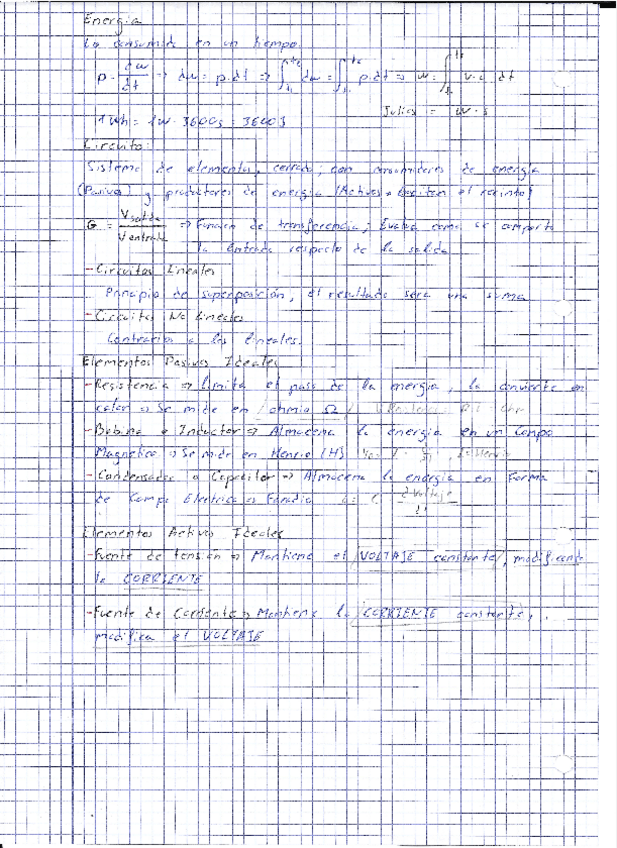 Energia
Lo consumido en un tiempo
p = dw/dt → dw = p·dt ⇒ ∫ dw = ∫ p·dt ⇒ w = ∫ v·i dt
Julios = w·s
1Wh = 1w·3600s = 3600J
Circuito:
Sistema de elementos, cerrado, con consumidores de energía
(Pasivos) y productores de energia (Activos
G = Vsalida/Ventrada ⇒ Funcion de transferencia; Evalua como se comporta
la Entrada respecto de la salida
-Circuitos Lineales
Principio de superposición, el resultado sera una suma
-Circuitos No Lineales
Contrarios a los lineales.
Elementos Pasivos Ideales
-Resistencia ⇒ Limita el paso de la energia, la convierte en
calor ⇒ Se mide en /ohmio Ω/
-Bobina o Inductor ⇒ Almacena la energia en un Campo
Magnetico ⇒ Se mide en Henrio (H)
-Condensador o Capacitor ⇒ Almacena la energia en Forma
de Campo Electrico ⇒ Faradio
Elementos Activos Ideales
-Fuente de tensión ⇒ Mantiene el /VOLTAJE constante/, modificando
la CORRIENTE
-Fuente de Corriente ⇒ Mantiene la /CORRIENTE constante,
modifica el VOLTAJE